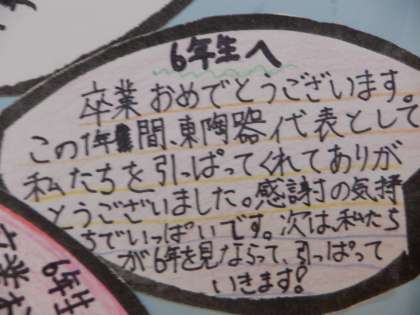 6年生へ
卒業おめでとうございます。
この1年間、東陶器代表として
私たちを引っぱってくれてありが
とうございました。感謝の気持
ちでいっぱいです。次は、私たち
が6年を見ならって、引っぱって
いきます!
6年生
卒業お